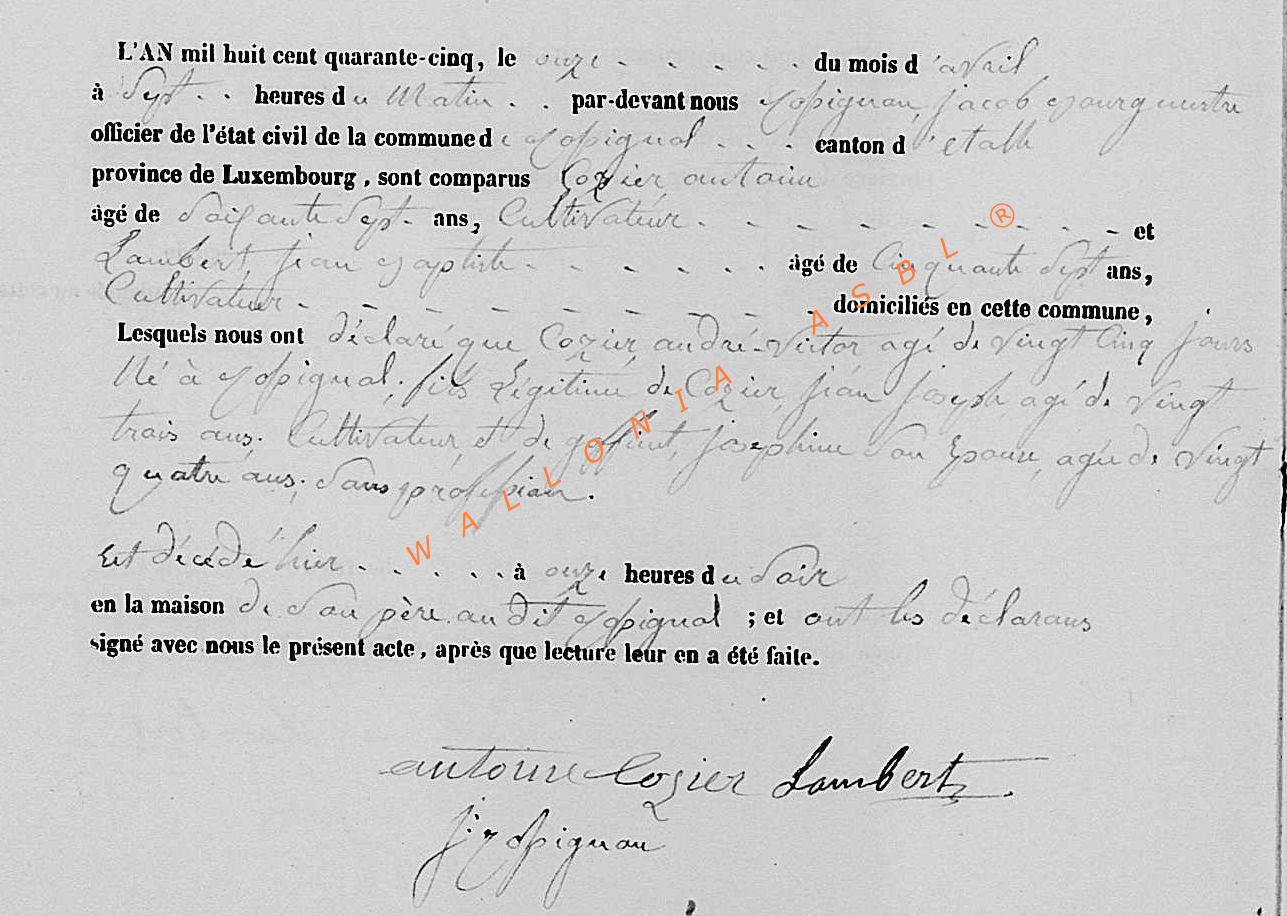 L'AN mil huit cent quarante-cinq, le onze . . . . . du mois d'avril
à Sept . . heures du Matin . . par-devant nous Rossignon, Jacob Bourgmestre
officier de l'état civil de la commune de Rossignol . . . canton d'étalle
province de Luxembourg, sont comparus Cozier antoine
âgé de Soixante Sept - ans, Cultivateur - - - - - - - - et
Lambert, jean Baptiste - - - - - - . âgé de Cinquante Sept ans,
Cultivateur - - - - - - - - . domiciliés en cette commune,
Lesquels nous ont déclaré que Cozier, andré-victor agé de vingt Cinq jours
Né à Rossignol, fils Légitime de Cozier, jean joseph agé de vingt
trois ans. Cultivateur, et de goffinet, josephine Son Epouse, agée de vingt
quatre ans, Sans profession.
Est décédé hier . . . . . à onze heures du Soir
en la maison de Son père, audit Rossignol ; et ont les déclarans
signé avec nous le présent acte, après que lecture leur en a été faite.
antoine Cozier Lambert
J: Rossignon
WALLONIA ASBL ®